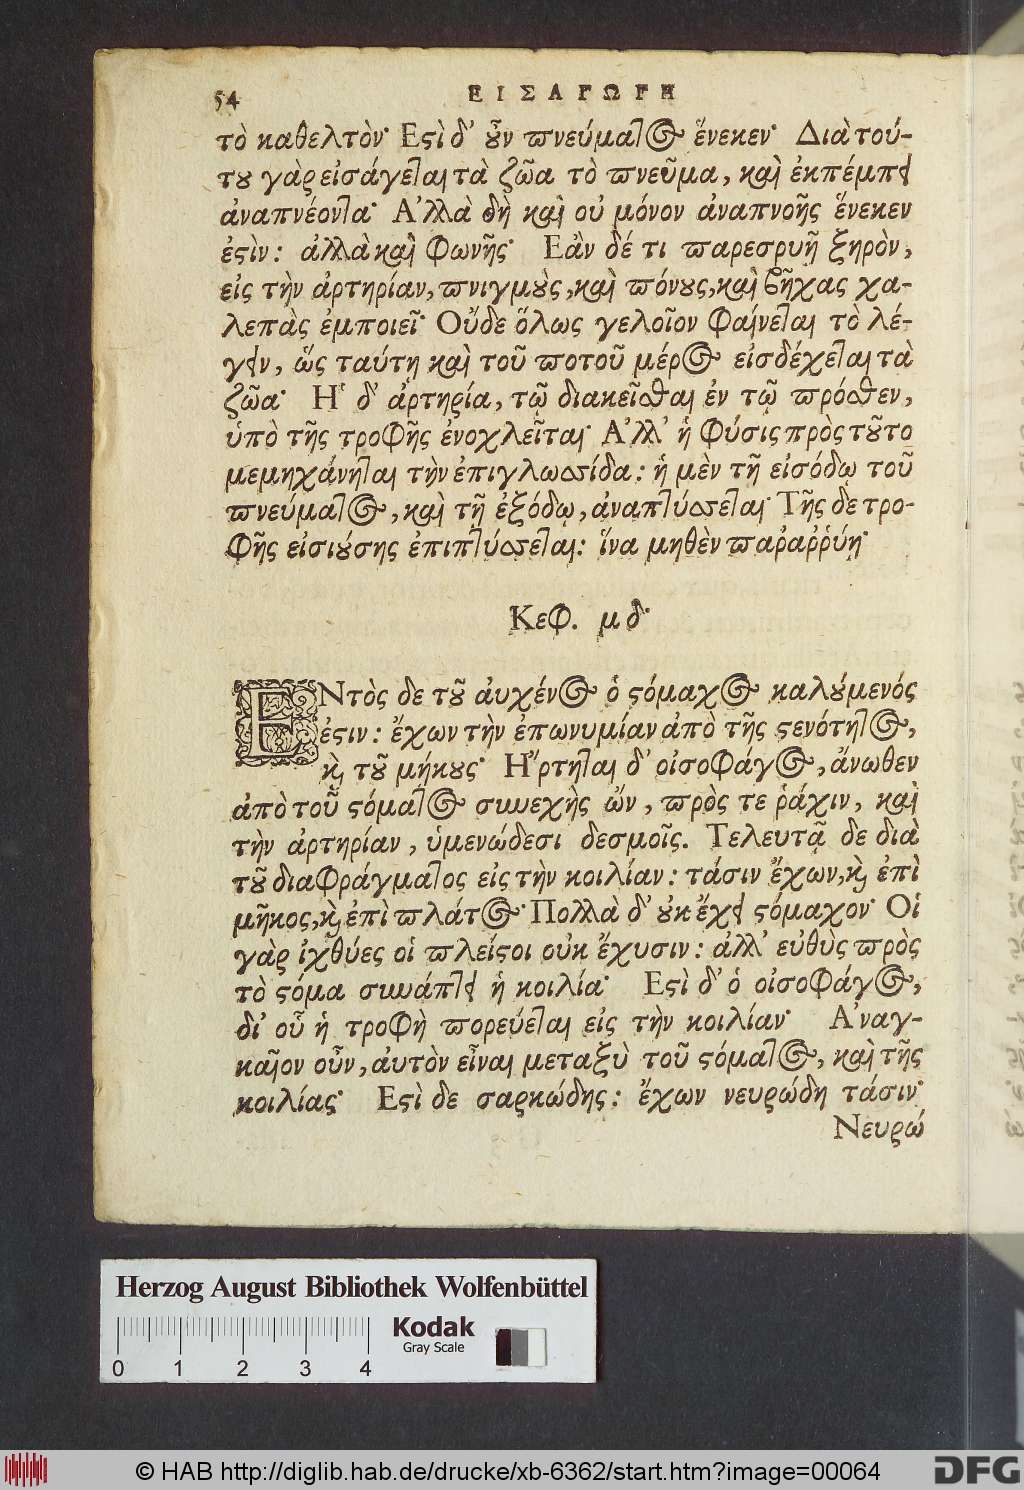 54 ΕΙΣΑΓΩΓΗ
τὸ καθελτὸν· Εϛὶ δ' ȣ̃ν πνεύματος ἕνεκεν· Διὰ τού-
τȣ γὰρ εἰσάγεται τὰ ζῶα τὸ πνεῦμα, καὶ ἐκπέμπει
ἀναπνέοντα· Ἀλλὰ δὴ καὶ οὐ μόνον ἀναπνοῆς ἕνεκεν
ἐϛὶν: ἀλλὰ καὶ φωνῆς· Εὰν δέ τι παρεσρυῆ ξηρὸν,
εἰς τὴν ἀρτηρίαν, πνιγμȣ̀ς, καὶ πόνȣς, καὶ βῆχας χα-
λεπὰς ἐμποιεῖ· Οὔδε ὅλως γελοῖον φαίνεται τὸ λέ-
γειν, ὥς ταύτη καὶ τοῦ ποτοῦ μέρος εἰσδέχεται τὰ
ζῶα· Ἡ δ' ἀρτηρία, τῷ διακεῖσθαι ἐν τῷ πρόσθεν,
ὑπὸ τῆς τροφῆς ἐνοχλεῖται· Ἀλλ' ἡ φύσις πρὸς τȣ̃το
μεμηχάνηται τὴν ἐπιγλωσσίδα: ἡ μὲν τῇ εἰσόδῳ τοῦ
πνεύματος, καὶ τῇ ἐξόδῳ, ἀναπτύσσεται· Τῆς δε τρο-
φῆς εἰσιȣ́σης ἐπιπτύσσεται: ἵνα μηθὲν παραῤῥύῃ·
Κεφ. μδ·
ΕΝτὸς δε τȣ̃ αυχένος ὁ ϛόμαχος καλȣ́μενός
ἐϛιν: ἔχων τὴν ἐπωνυμίαν ἀπὸ τῆς ϛενότητος,
ϗ τȣ̃ μήκȣς· Ἤρτηται δ' οἰσοφάγος, ἄνωθεν
ἀπὸ τοῦ ϛόματος συνεχὴς ὤν, πρὸς τε ῥάχιν, καὶ
τὴν ἀρτηρίαν, ὑμενώδεσι δεσμοῖς. Τελευτᾷ δε διὰ
τȣ̃ διαφράγματος εἰς τὴν κοιλίαν: τάσιν ἔχων, ϗ ἐπὶ
μῆκος, ϗ ἐπὶ πλάτος· Πολλὰ δ' ȣκ ἔχει ϛόμαχον· Οἱ
γὰρ ἰχθύες οἱ πλείϛοι ουκ ἔχυσιν: ἀλλ' εὐθὺς πρὸς
τὸ ϛόμα συνάπτει ἡ κοιλία· Εϛὶ δ' ὁ οἰσοφάγος,
δι' οὗ ἡ τροφὴ πορεύεται εἰς τὴν κοιλίαν· Ἀναγ-
καῖον οὖν, ἀυτὸν εἶναι μεταξὺ τοῦ ϛόματος, καὶ τῆς
κοιλίας· Εϛὶ δε σαρκώδης: ἔχων νευρώδη τάσιν·
Νευρώ
Herzog August Bibliothek Wolfenbüttel
Kodak
Gray Scale
0 1 2 3 4
© HAB http://diglib.hab.de/drucke/xb-6362/start.htm?image=00064
DFG